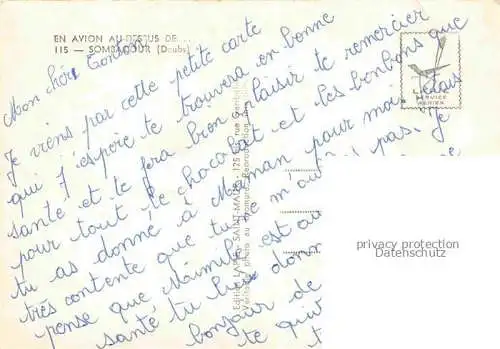 EN AVION AU-DESSUS DE...
115 — SOMBACOUR (Doubs)
Mon chéri Tonton
Je viens par cette petite carte
qui j'espère te trouvera en bonne
santé et te fera bien plaisir te remercier
pour tout le chocolat et les bonbons que
tu as donné à Maman pour moi. J'étais
très contente que tu ne m'ou pas. Je
pense que Mimile est au
santé tu lui donn
bonjour de
te quit
t
LAPIE
SERVICE
AERIEN
Edition LAPIE SAINT-MAUR - 125 rue Gambetta
Véritable photo au bromure. Reproduction
privacy protection
Datenschutz